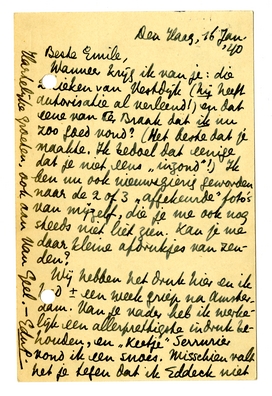 Den Haag, 16 Jan. '40
Beste Emile,
Wanneer krijg ik van je: die
3 ieken van Vestdijk (hij heeft
autorisatie al verleend!) en dat
eene van Ter Braak dat ik nu
zoo goed vond? (Het derde dat je
maakte. Ik bedoel dat eenige
dat je niet eens „inzond"!) Ik
ben nu ook nieuwsgierig geworden
naar de 2 of 3 „afgekeurde" foto's
van mijzelf, die je me ook nog
steeds niet liet zien. Kan je me
daar kleine afdrukjes van zen-
den?
Wij hebben het druk hier en ik
± een week griep na Amster-
dam. Van je vader heb ik werke-
lijk een allerprettigste indruk be-
houden, en „Keetje" Serrurier
vond ik een snoes. Misschien valt
het je tegen dat ik Eddeck niet
Hartelijke groeten, ook aan Van Geel. — Edup. —